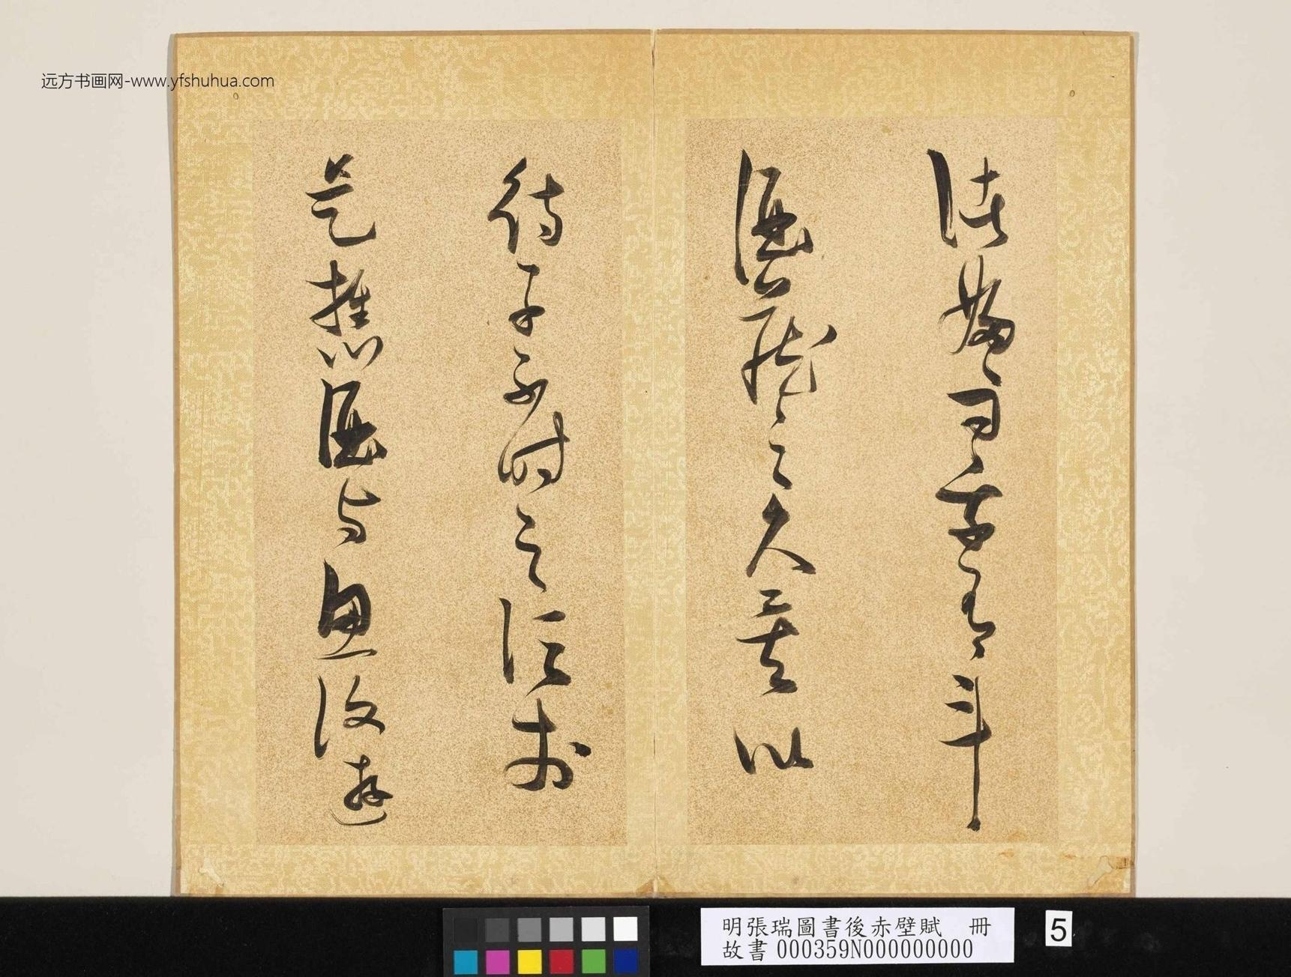 远方书画网-www.yfshuhua.com
諸婦婦曰我有斗
酒藏之久矣以
待子不時之須於
是攜酒與魚復遊
明張瑞圖書後赤壁賦 冊
故書000359N000000000
5